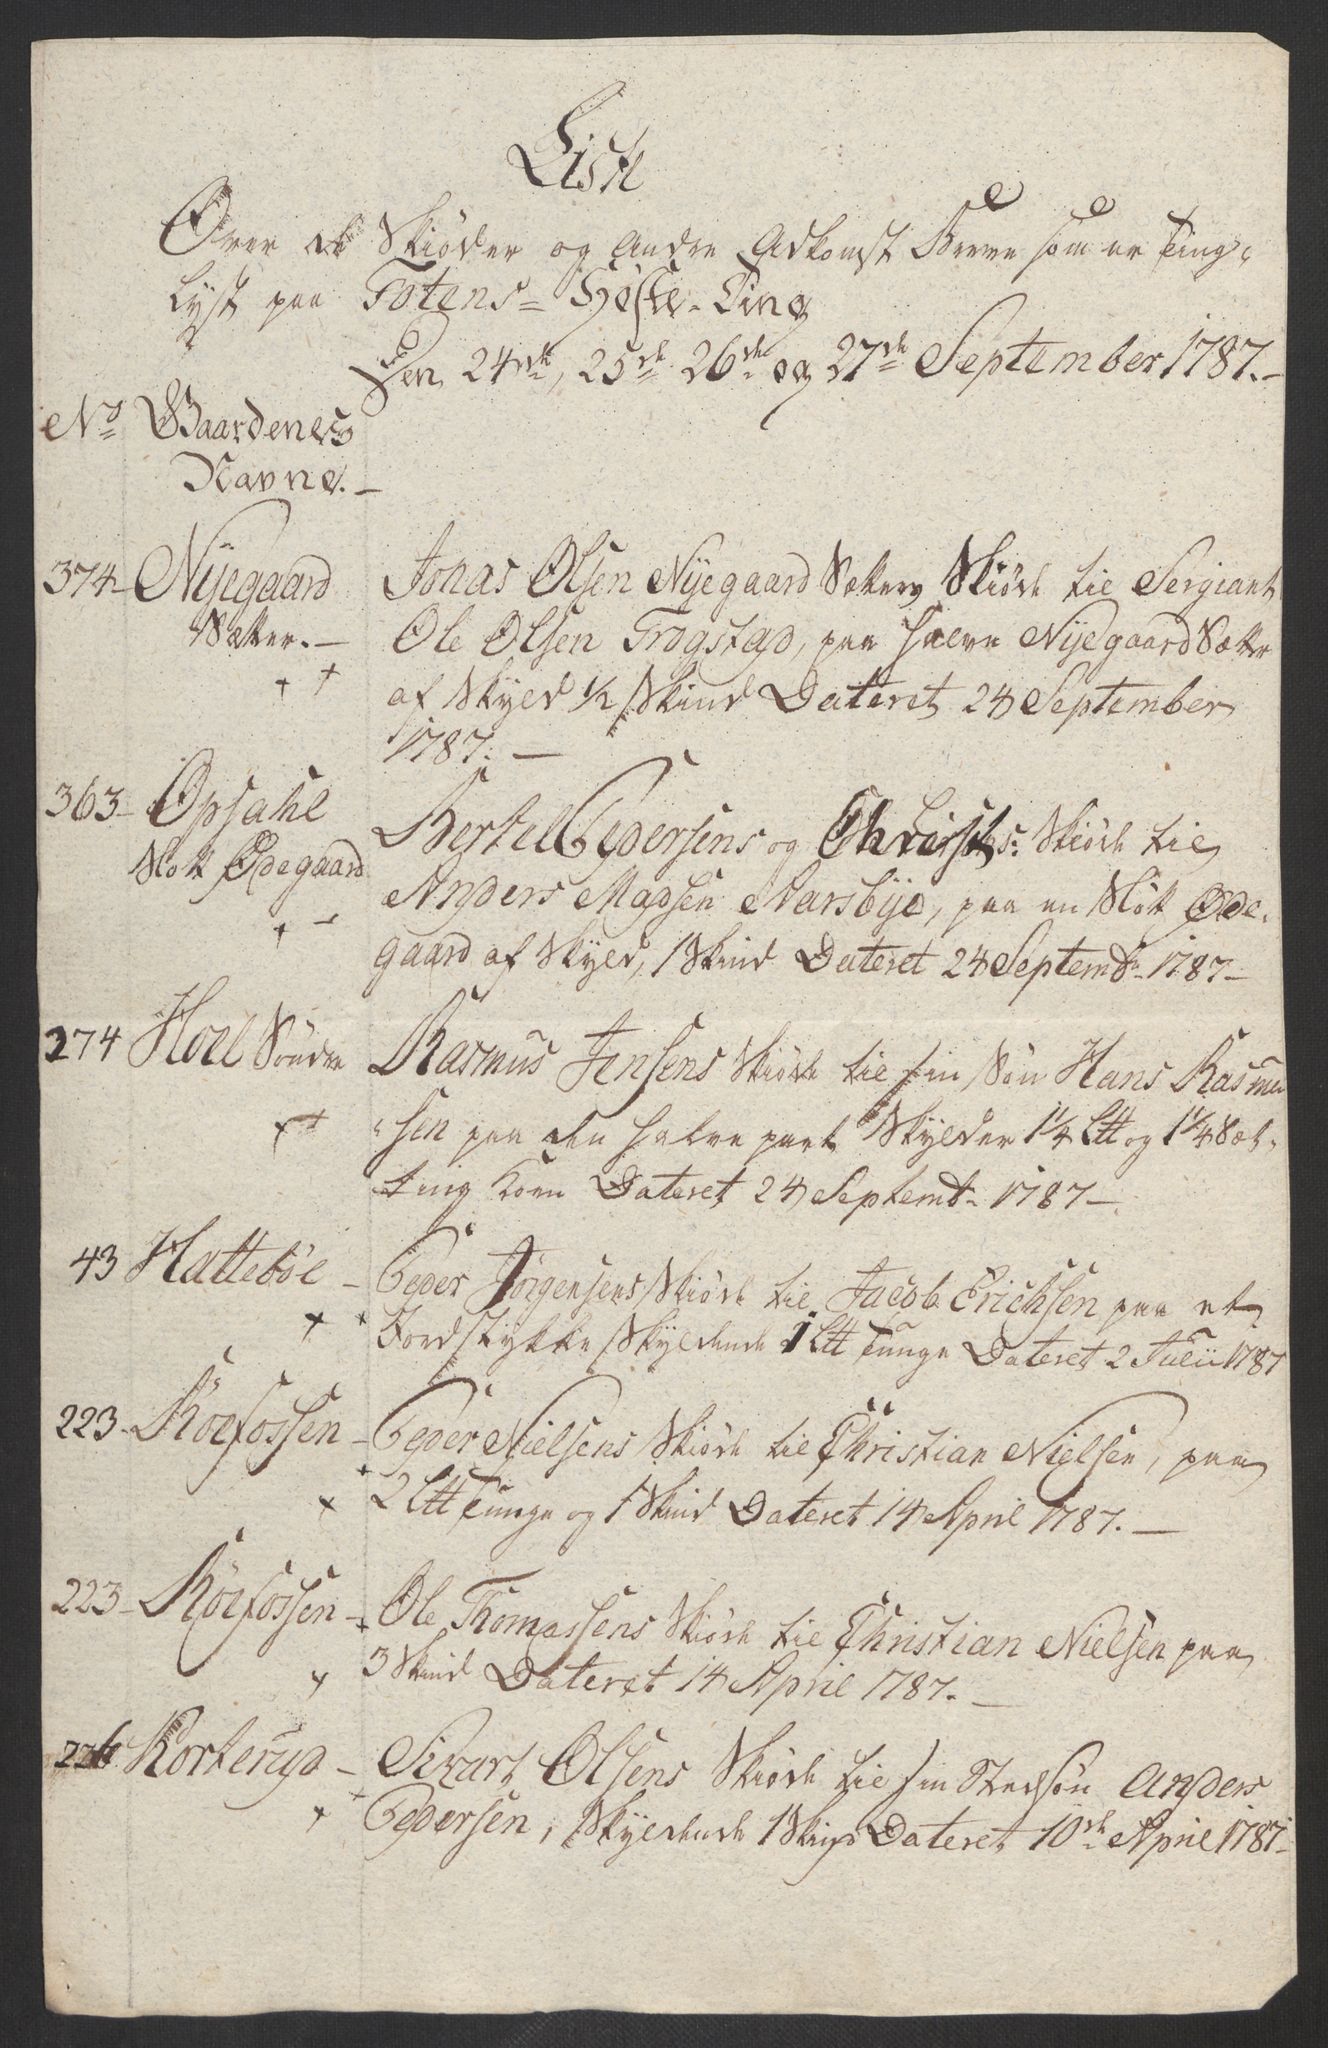 Liste
Over de Skiøder og Andre Adkomst Breve som er Ting-
lyst paa Totens Høste-Ting
Den 24de, 25de 26de og 27de September 1787.
No Gaardenes
Navne.
374 Nyegaard Jonas Olsen Nyegaard Sætters Skiøde til Sergiant
Sætter. Ole Olsen Trogstad, paa halve Nyegaard Sætter
af Skyld 1/2 Skind Dateret 24 September
1787.
363 Opsahl Bertel Pedersens og Christs: Skiøde til
Slot Ødegaard Anders Madsen Narsbye, paa en Slot Øde-
gaard af Skyld, 1 Skind Dateret 24 Septembr 1787
274 Hoel Søndre Rasmus Jensens Skiøde til sin Søn Hans Rasmu
sen paa den halve part Skylder 1 1/4 Ltt og 1 1/4 Sæt-
ting Korn Dateret 24 Septembr 1787
43 Hattebøe Peder Jørgensens Skiøde til Jacob Erichsen paa et
Jordstykke Skyldende 1 Ltt Tunge Dateret 2 Julii 1787
223 Røefossen Peder Nielsens Skiøde til Christian Nielsen, paa
2 Ltt Tunge og 1 Skind Dateret 14 April 1787.
223 Røefossen Ole Thomassens Skiøde til Christian Nielsen paa
3 Skind Dateret 14 April 1787.
226 Korterud Sivart Olsens Skiøde til sin Stedsøn Anders
Pedersen, Skyldende 1 Skind Dateret 10de April 1787